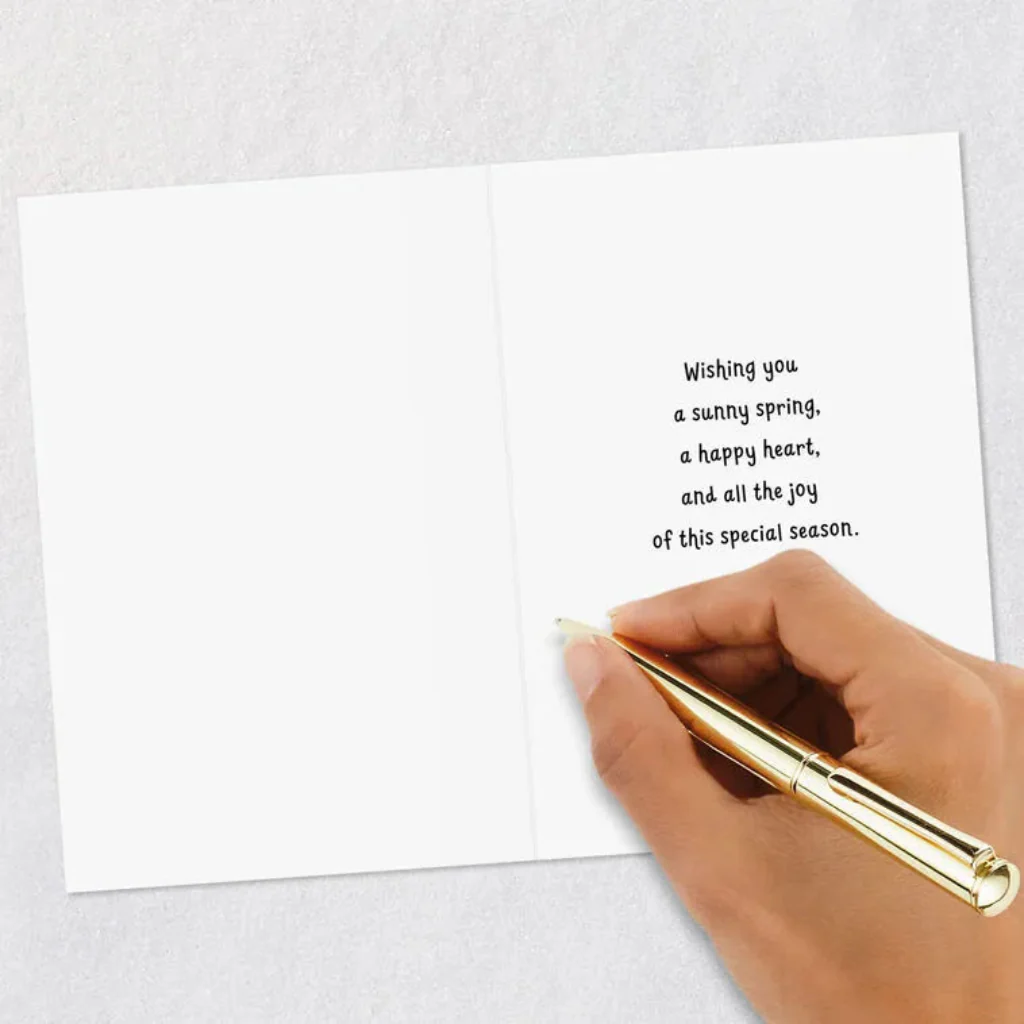 Wishing you
a sunny spring,
a happy heart,
and all the joy
of this special season.